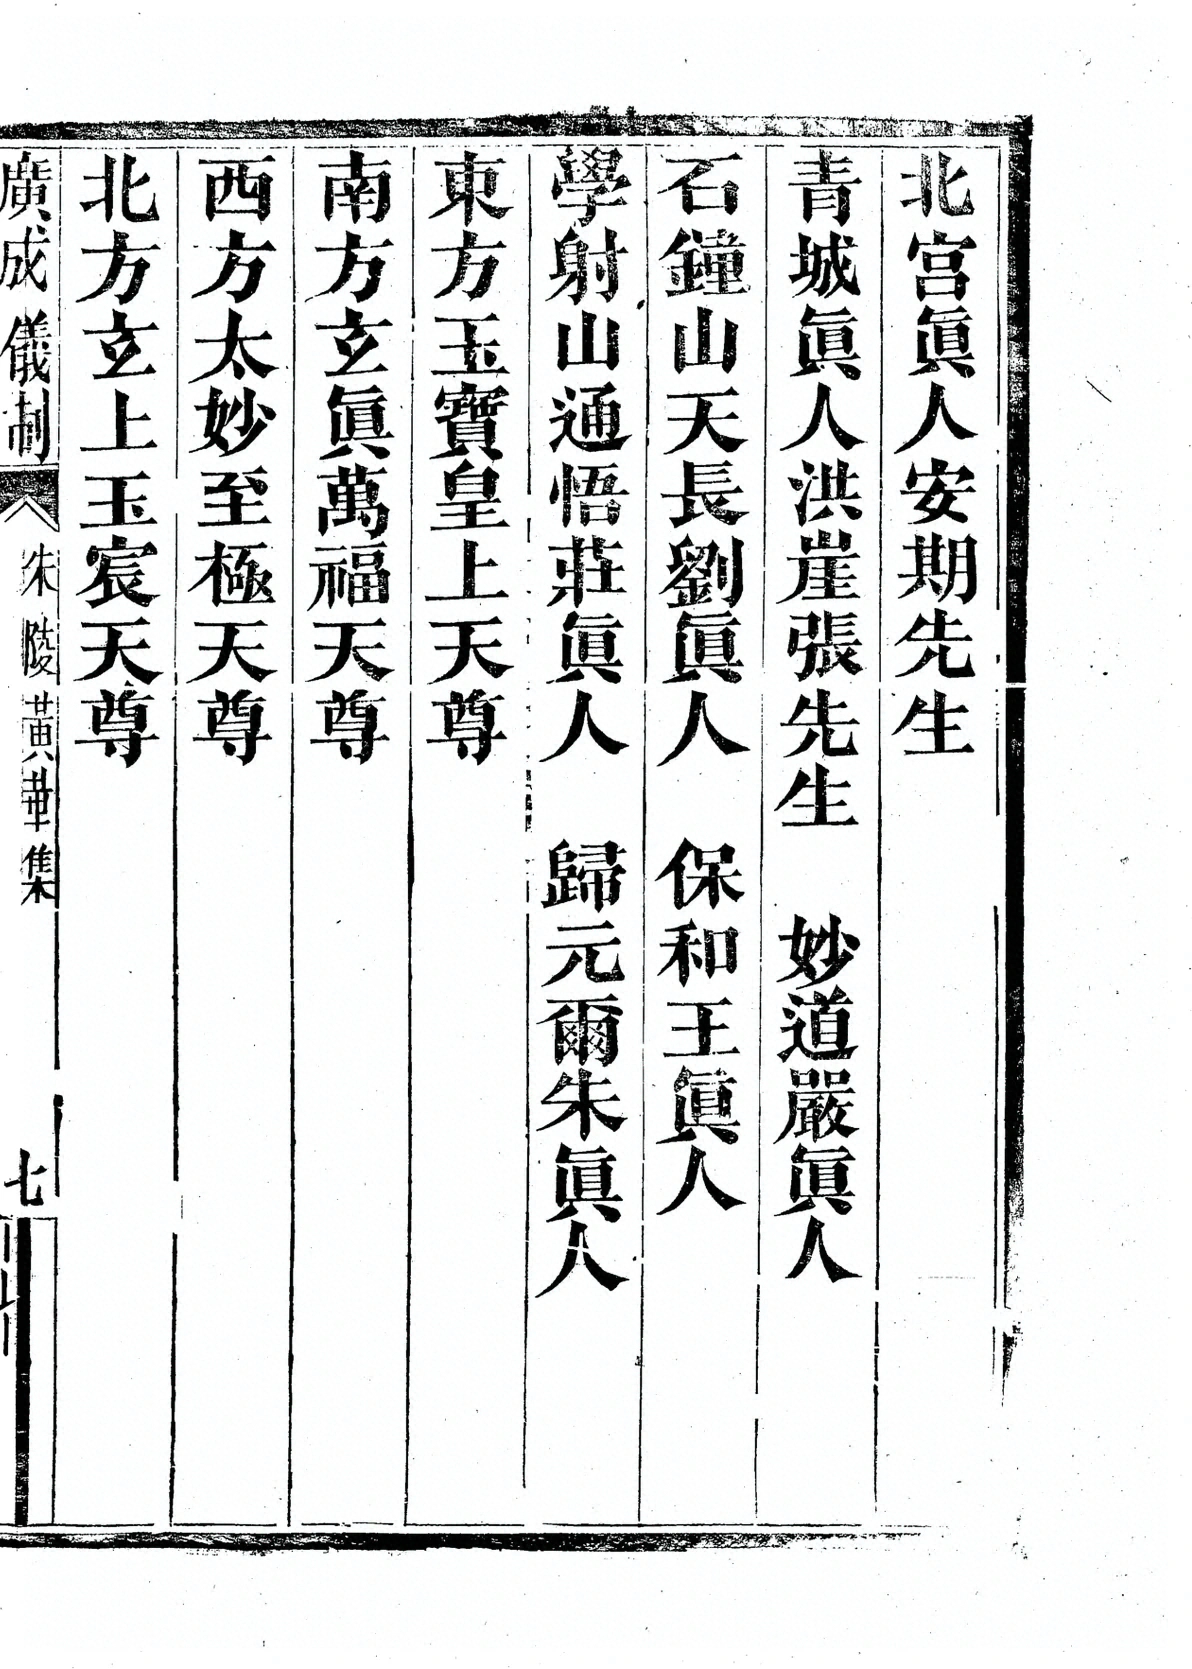 北宮眞人安期先生
青城眞人洪崖張先生　妙道嚴眞人
石鐘山天長劉眞人　保和王眞人
學射山通悟莊眞人　歸元爾朱眞人
東方玉寶皇上天尊
南方玄眞萬福天尊
西方太妙至極天尊
北方玄上玉宸天尊
廣成儀制　朱陵黃華集　七